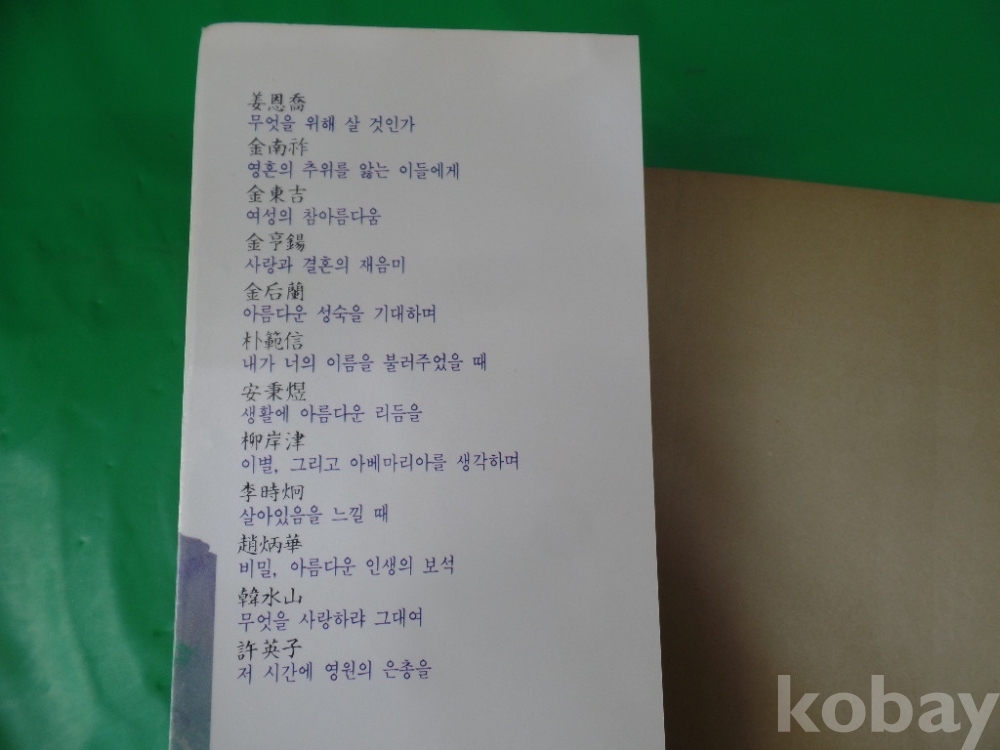 姜恩喬
무엇을 위해 살 것인가
金南祚
영혼의 추위를 앓는 이들에게
金東吉
여성의 참아름다움
金亨錫
사랑과 결혼의 재음미
金后蘭
아름다운 성숙을 기대하며
朴範信
내가 너의 이름을 불러주었을 때
安秉煜
생활에 아름다운 리듬을
柳岸津
이별, 그리고 아베마리아를 생각하며
李時炯
살아있음을 느낄 때
趙炳華
비밀, 아름다운 인생의 보석
韓水山
무엇을 사랑하랴 그대여
許英子
저 시간에 영원의 은총을
kobay